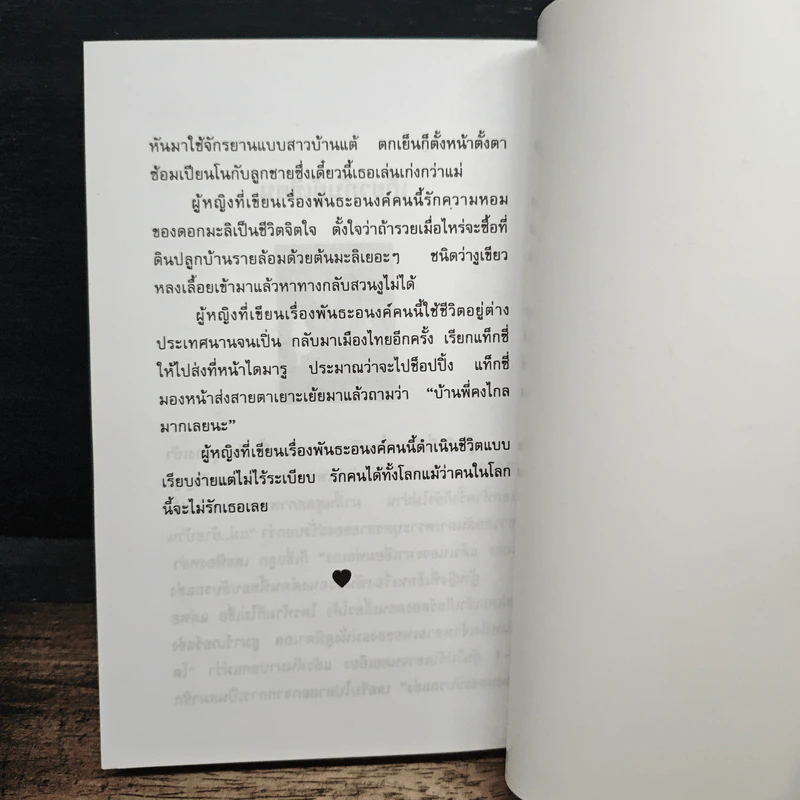 หันมาใช้จักรยานแบบสาวบ้านแต้ ตกเย็นก็ตั้งหน้าตั้งตา
ซ้อมเปียนโนกับลูกชายซึ่งเดี๋ยวนี้เธอเล่นเก่งกว่าแม่
ผู้หญิงที่เขียนเรื่องพันธะอนงค์คนนี้รักความหอม
ของดอกมะลิเป็นชีวิตจิตใจ ตั้งใจว่าถ้ารวยเมื่อไหร่จะซื้อที่
ดินปลูกบ้านรายล้อมด้วยต้นมะลิเยอะๆ ชนิดว่างูเขียว
หลงเลื้อยเข้ามาแล้วหาทางกลับสวนงูไม่ได้
ผู้หญิงที่เขียนเรื่องพันธะอนงค์คนนี้ใช้ชีวิตอยู่ต่าง
ประเทศนานจนเปิ่น กลับมาเมืองไทยอีกครั้ง เรียกแท็กซี่
ให้ไปส่งที่หน้าไดมารู ประมาณว่าจะไปช็อปปิ้ง แท็กซี่
มองหน้าส่งสายตาเยาะเย้ยมาแล้วถามว่า “บ้านพี่คงไกล
มากเลยนะ”
ผู้หญิงที่เขียนเรื่องพันธะอนงค์คนนี้ดำเนินชีวิตแบบ
เรียบง่ายแต่ไม่ไร้ระเบียบ รักคนได้ทั้งโลกแม้ว่าคนในโลก
นี้จะไม่รักเธอเลย